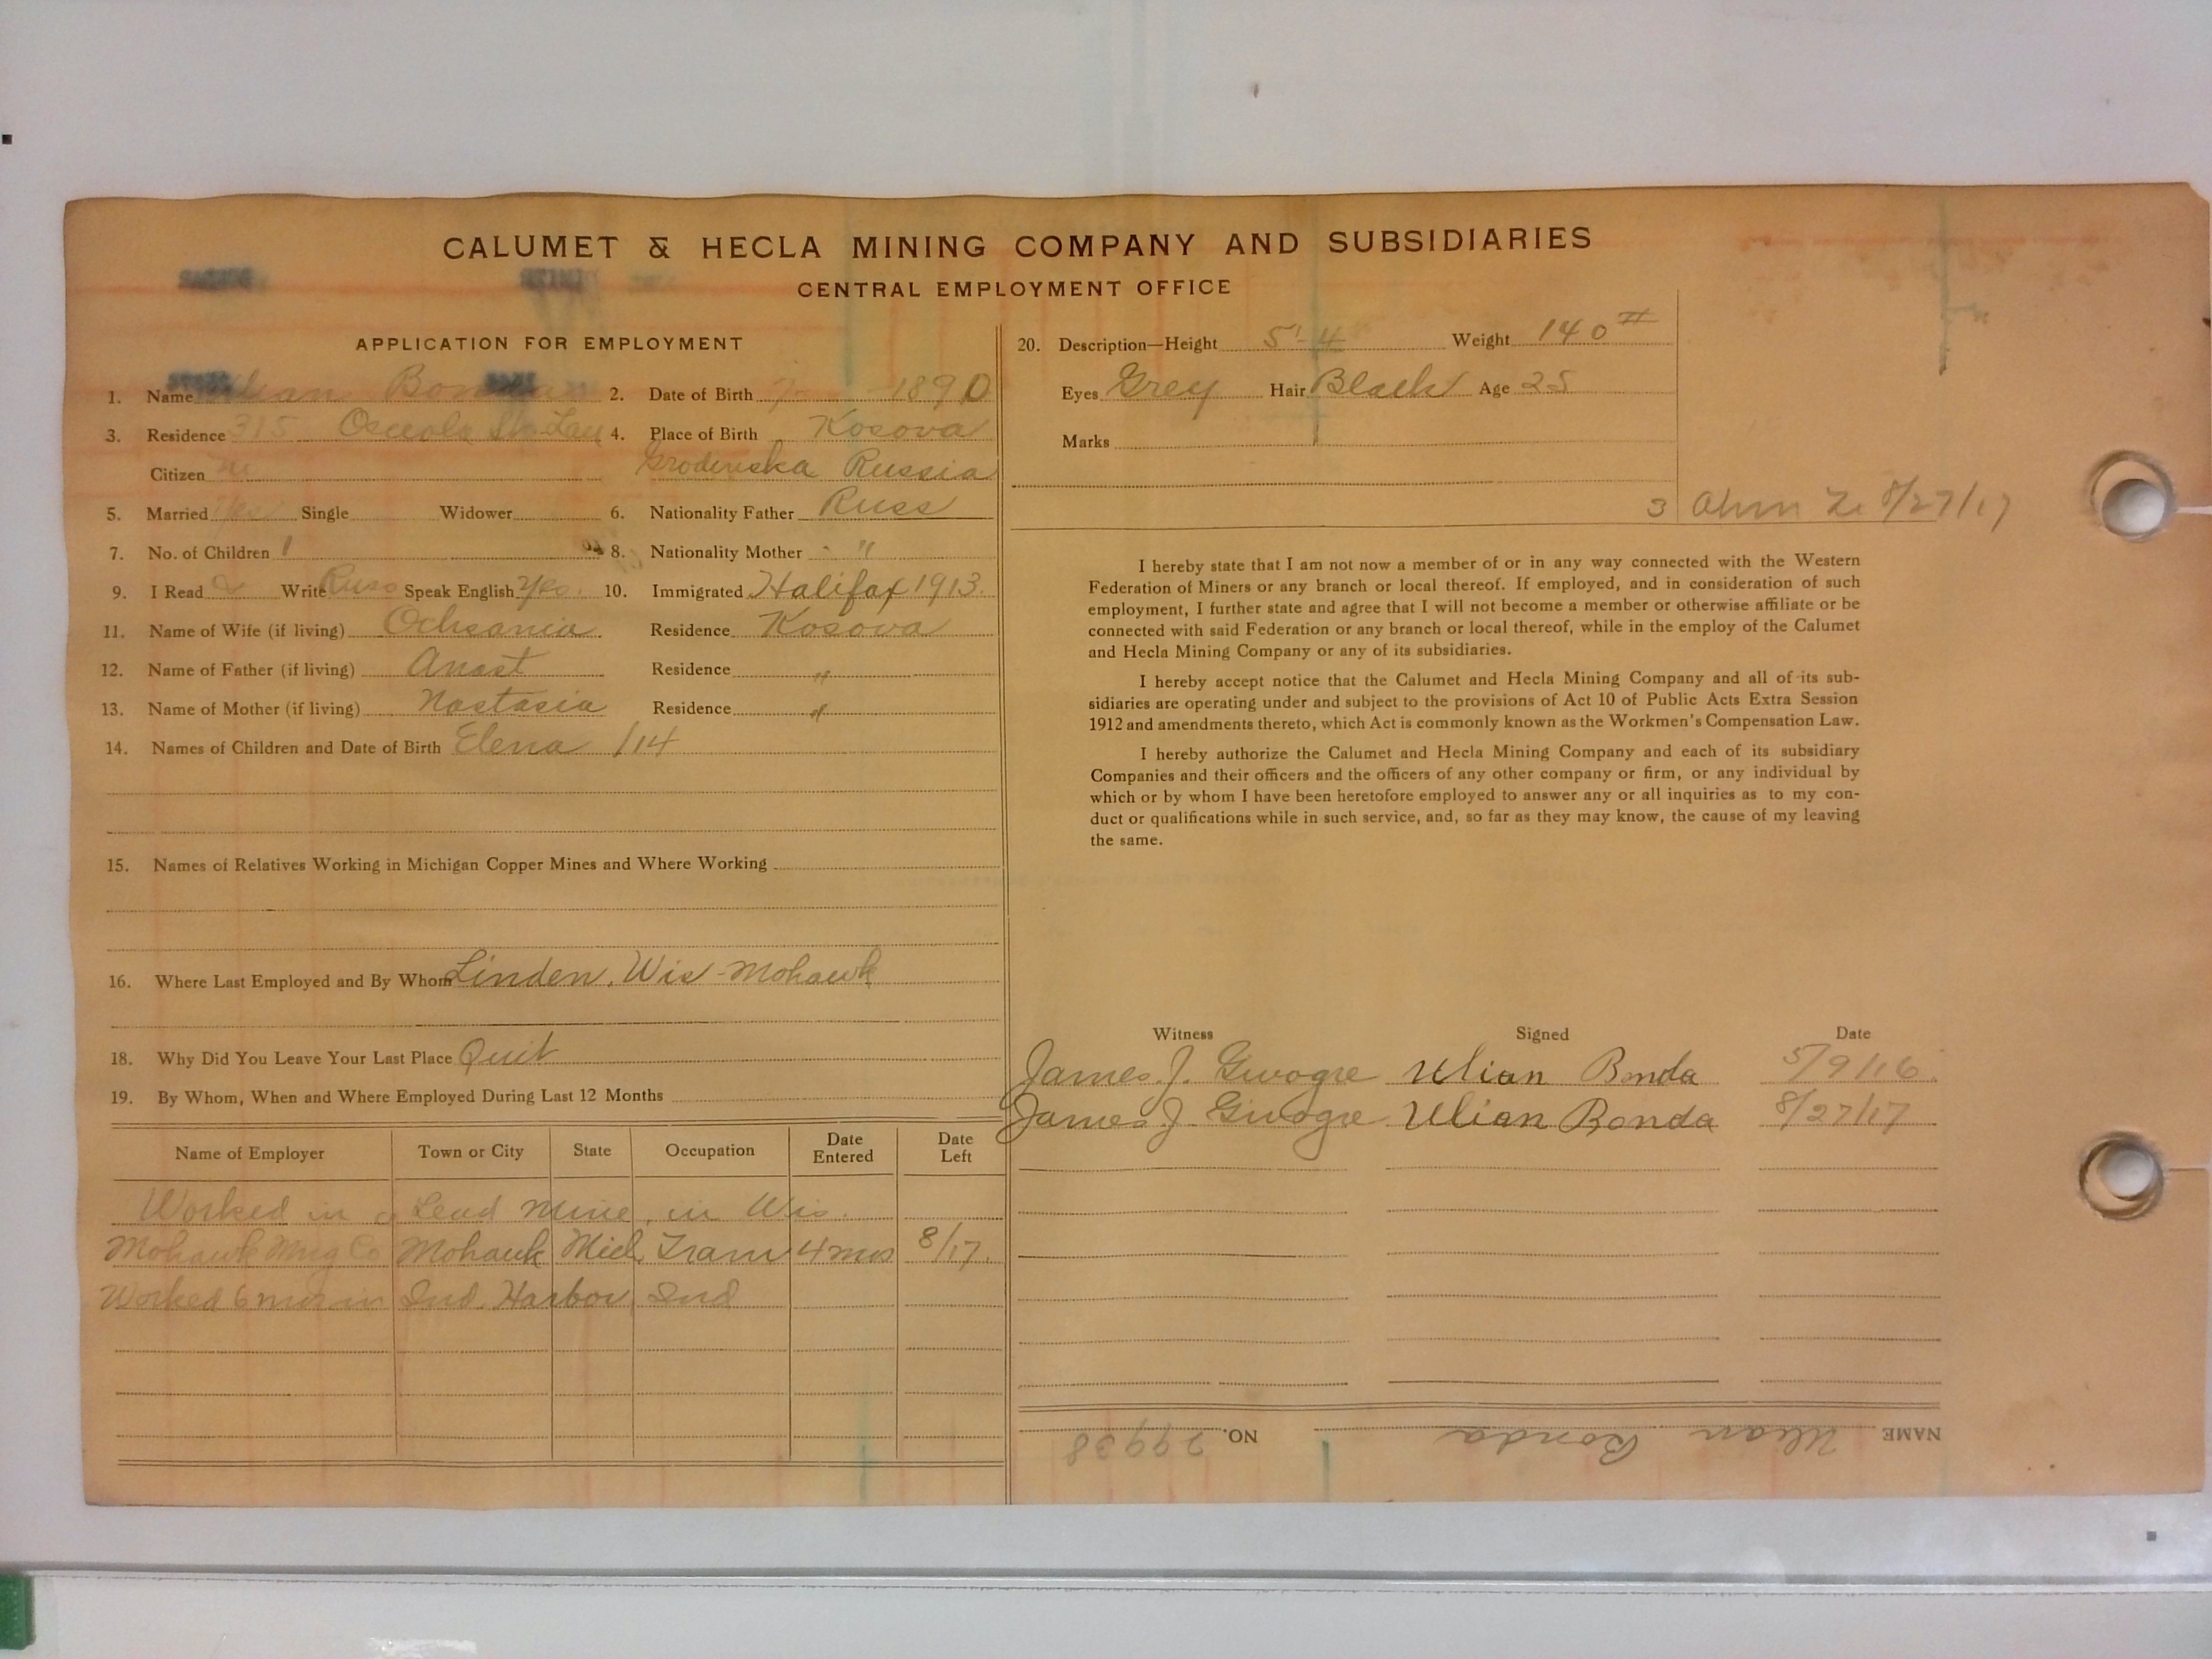 CALUMET & HECLA MINING COMPANY AND SUBSIDIARIES
CENTRAL EMPLOYMENT OFFICE
APPLICATION FOR EMPLOYMENT
1. Name
2. Date of Birth 1890
3. Residence 315 Osceola
4. Place of Birth Kosova
Citizen
Grodenska Russia
5. Married Yes Single Widower
6. Nationality Father Russ
7. No. of Children 1
8. Nationality Mother "
9. I Read Write Russ Speak English Yes.
10. Immigrated Halifax 1913.
11. Name of Wife (if living) Ochsania Residence Kosova
12. Name of Father (if living) Anast Residence "
13. Name of Mother (if living) Nastasia Residence "
14. Names of Children and Date of Birth Elena /14
15. Names of Relatives Working in Michigan Copper Mines and Where Working
16. Where Last Employed and By Whom Linden, Wis - Mohawk
18. Why Did You Leave Your Last Place Quit
19. By Whom, When and Where Employed During Last 12 Months
Name of Employer Town or City State Occupation Date Entered Date Left
Worked in a Lead Mine, in Wis.
Mohawk Mng Co Mohawk Mich Tram 4 mos 8/17.
Worked 6 mos in Ind. Harbor, Ind
20. Description—Height 5'-4 Weight 140 #
Eyes Grey Hair Black Age 25
Marks
3 8/27/17
I hereby state that I am not now a member of or in any way connected with the Western
Federation of Miners or any branch or local thereof. If employed, and in consideration of such
employment, I further state and agree that I will not become a member or otherwise affiliate or be
connected with said Federation or any branch or local thereof, while in the employ of the Calumet
and Hecla Mining Company or any of its subsidiaries.
I hereby accept notice that the Calumet and Hecla Mining Company and all of its sub-
sidiaries are operating under and subject to the provisions of Act 10 of Public Acts Extra Session
1912 and amendments thereto, which Act is commonly known as the Workmen's Compensation Law.
I hereby authorize the Calumet and Hecla Mining Company and each of its subsidiary
Companies and their officers and the officers of any other company or firm, or any individual by
which or by whom I have been heretofore employed to answer any or all inquiries as to my con-
duct or qualifications while in such service, and, so far as they may know, the cause of my leaving
the same.
Witness Signed Date
James J. Gwogre Ulian Bonda 5/9/16.
James J. Gwogre Ulian Bonda 8/27/17
NAME Ulian Bonda NO. 29938